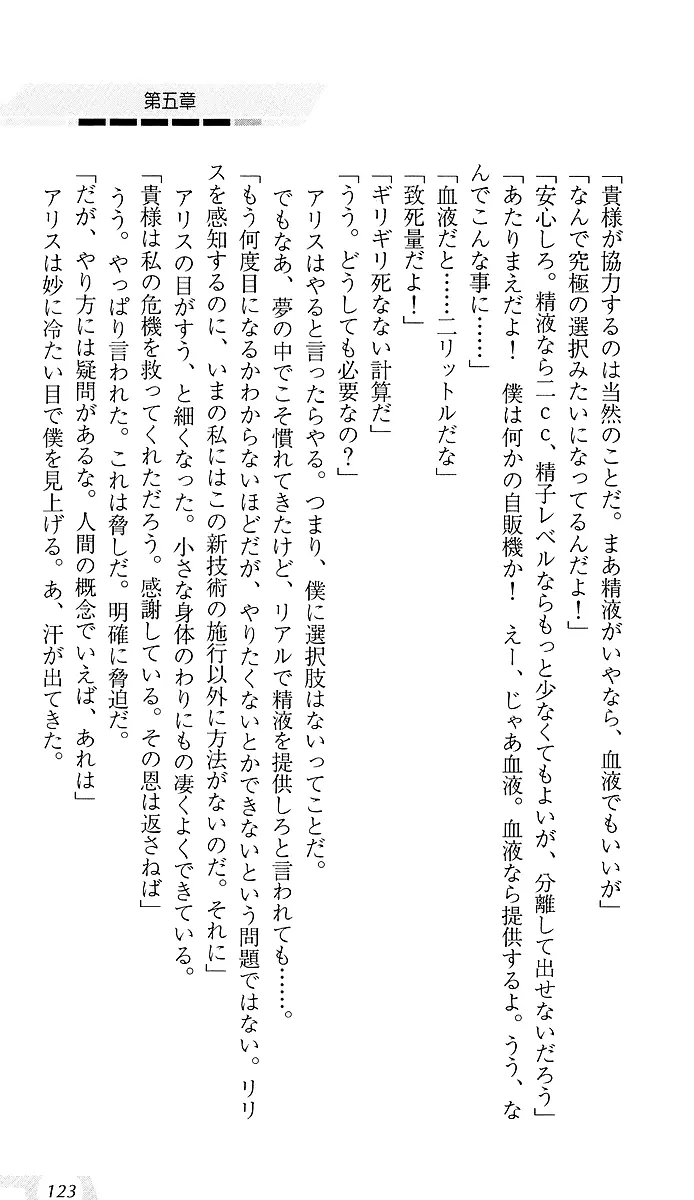 第五章
「貴様が協力するのは当然のことだ。まあ精液がいやなら、血液でもいいが」
「なんで究極の選択みたいになってるんだよ！」
「安心しろ。精液なら二ｃｃ、精子レベルならもっと少なくてもよいが、分離して出せないだろう」
「あたりまえだよ！　僕は何かの自販機か！　えー、じゃあ血液。血液なら提供するよ。うう、な
んでこんな事に……」
「血液だと……二リットルだな」
「致死量だよ！」
「ギリギリ死なない計算だ」
「うう。どうしても必要なの？」
アリスはやると言ったらやる。つまり、僕に選択肢はないってことだ。
でもなあ、夢の中でこそ慣れてきたけど、リアルで精液を提供しろと言われても……。
「もう何度目になるかわからないほどだが、やりたくないとかできないという問題ではない。リリ
スを感知するのに、いまの私にはこの新技術の施行以外に方法がないのだ。それに」
アリスの目がすう、と細くなった。小さな身体のわりにもの凄くよくできている。
「貴様は私の危機を救ってくれただろう。感謝している。その恩は返さねば」
うう。やっぱり言われた。これは脅しだ。明確に脅迫だ。
「だが、やり方には疑問があるな。人間の概念でいえば、あれは」
アリスは妙に冷たい目で僕を見上げる。あ、汗が出てきた。
123